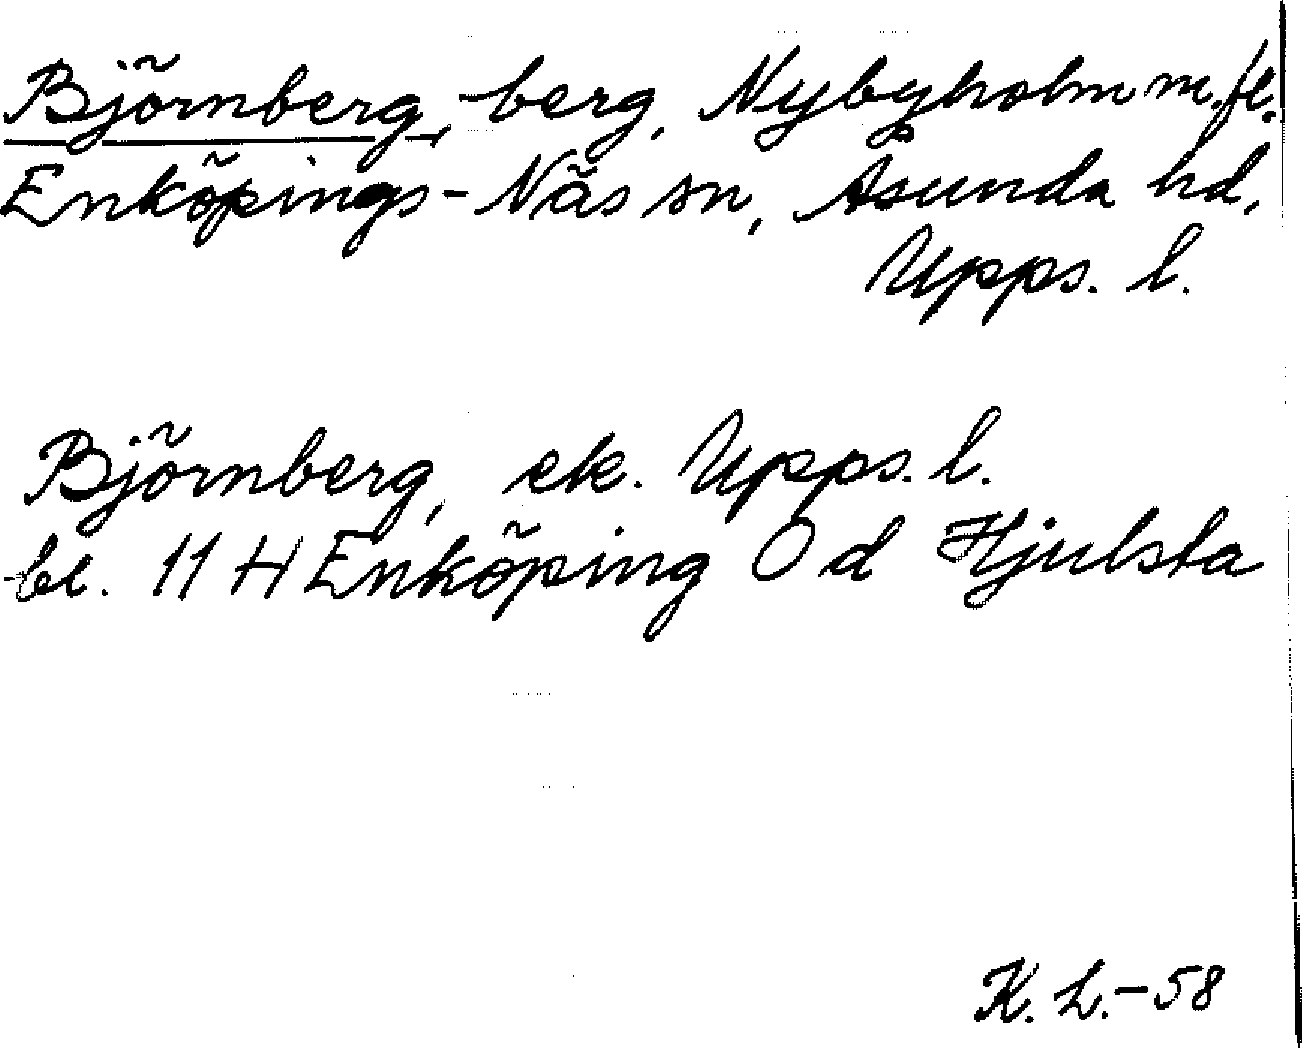 Björnberg, -berg, Nybyholm m.fl.
Enköpings-Näs sn, Åsunda hd,
Upps. l.
Björnberg, ek. Upps. l.
bl. 11 H Enköping O d Hjulsta
K. L. -58